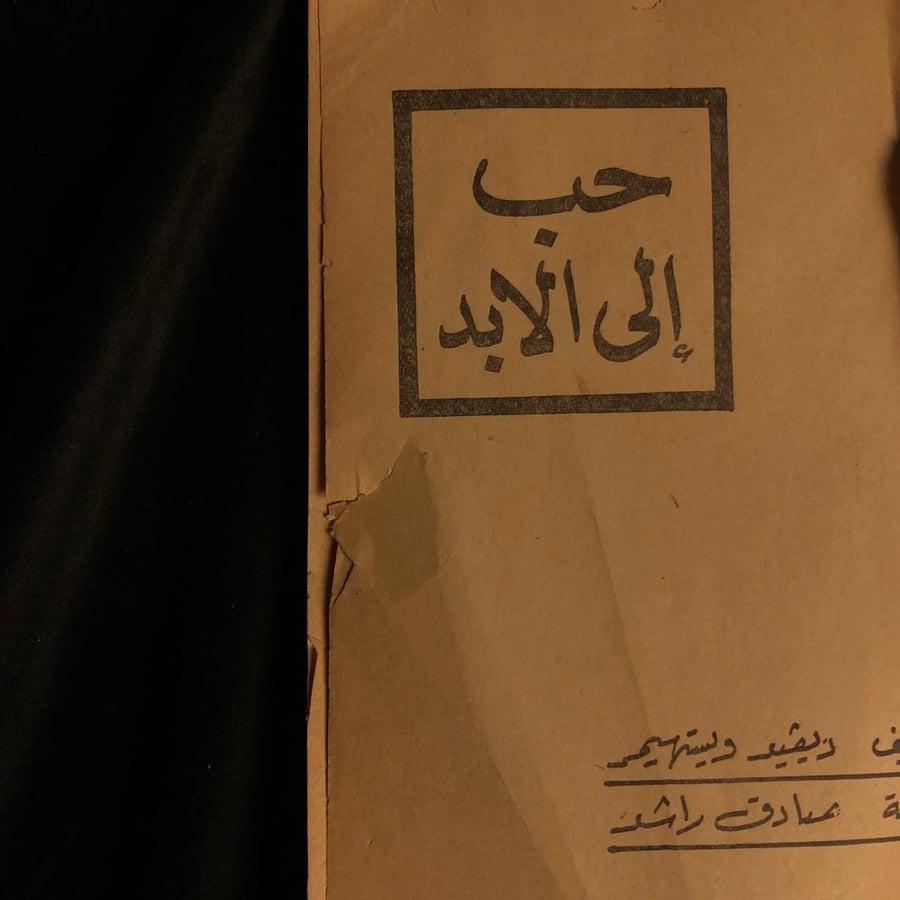 حب
إلى الابد
ـيف ديڤيد ويستهيمر
ـة صادق راشد